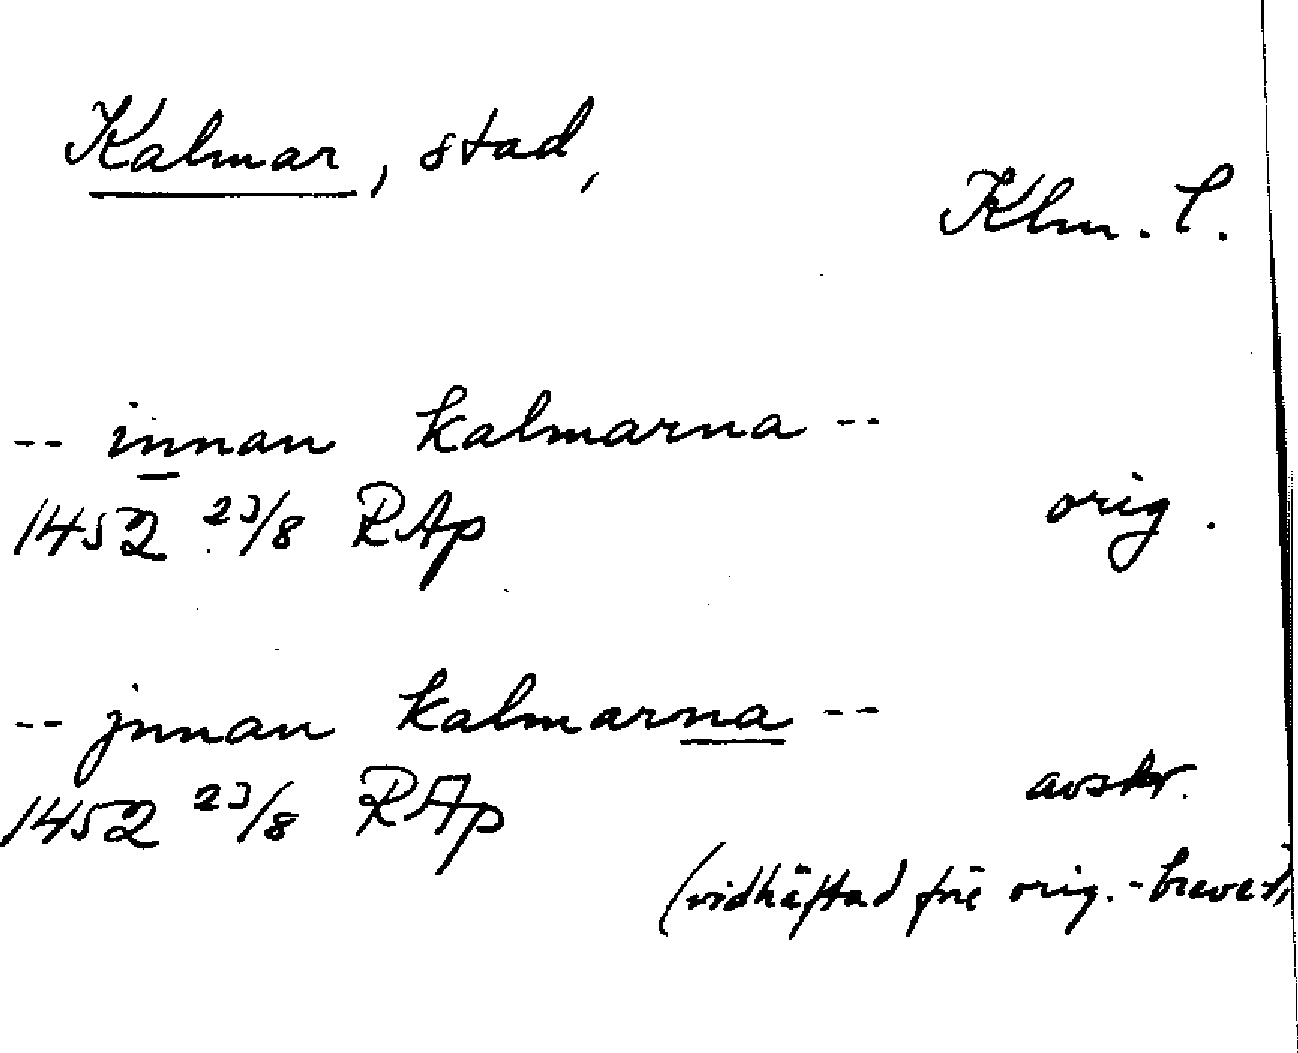 Kalmar, stad,
Klm. l.
-- innan kalmarna --
1452 23/8 RAp
orig.
-- jnnan kalmarna --
1452 23/8 RAp
avskr.
(vidhäftad före orig.-brevet)